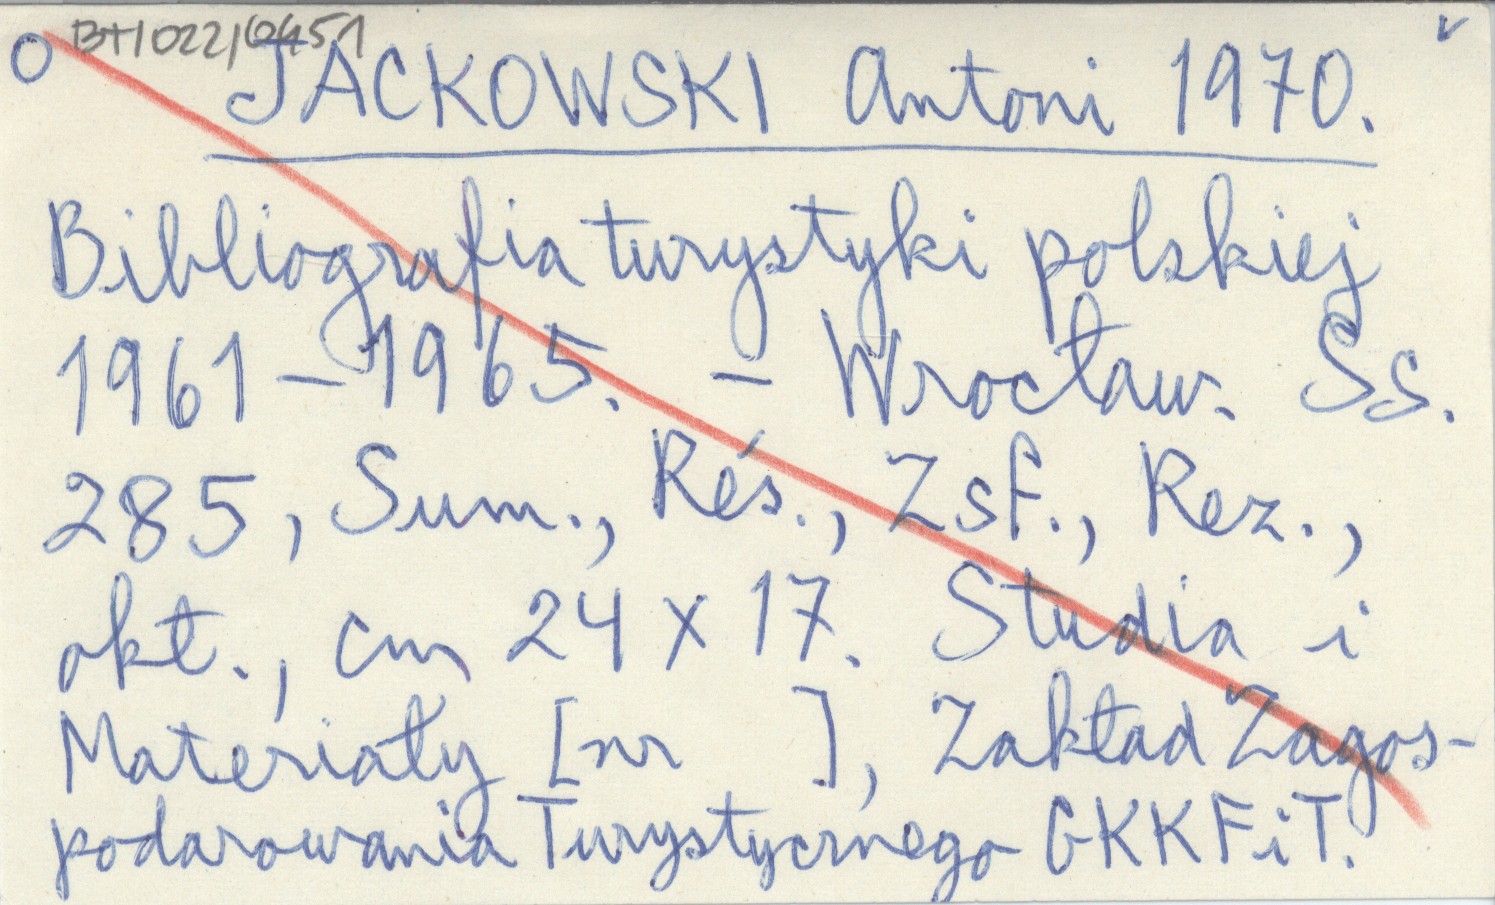 O BT/022/0451 v
JACKOWSKI Antoni 1970.
Bibliografia turystyki polskiej
1961–1965. – Wrocław. Ss.
285, Sum., Rés., Zsf., Rez.,
okł., cm 24 x 17. Studia i
Materiały [nr ], Zakład Zagos-
podarowania Turystycznego GKKFiT.